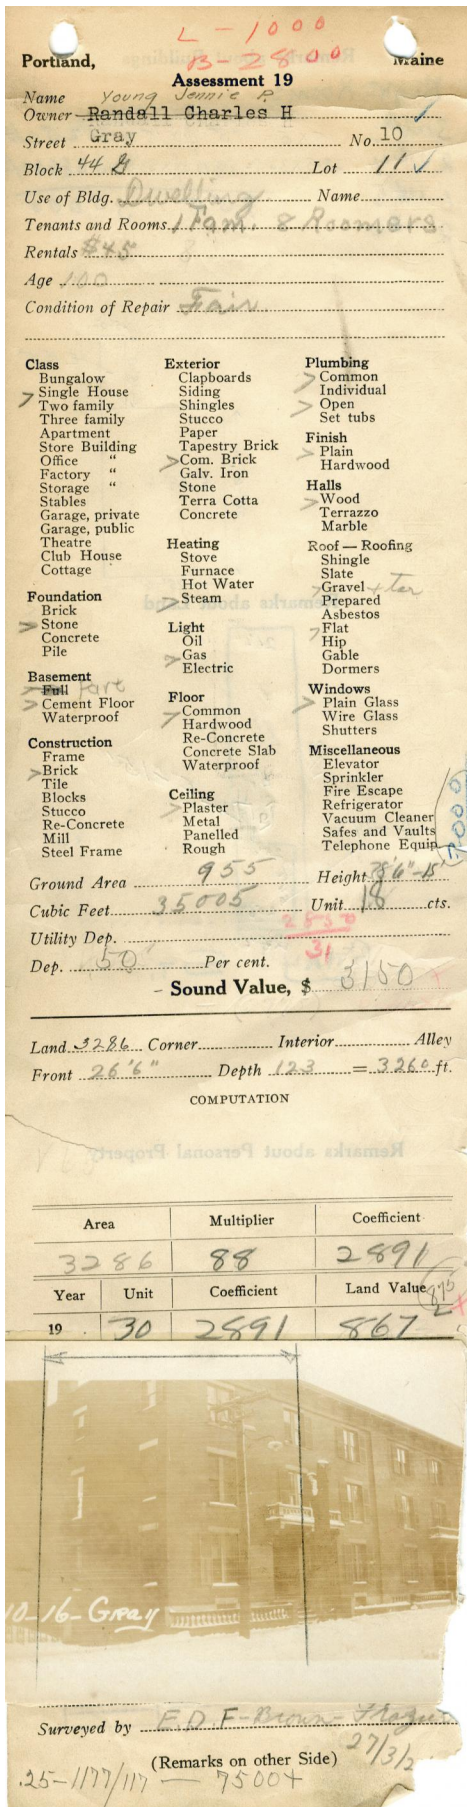 L - 1000
B - 2800
Portland, Maine
Assessment 19
Name Young Jennie P.
Owner Randall Charles H
Street Gray No. 10
Block 44 G Lot 11
Use of Bldg. Dwelling Name
Tenants and Rooms 1 Fam. 8 Roomers
Rentals $45
Age 100
Condition of Repair Fair
Class
Bungalow
Single House
Two family
Three family
Apartment
Store Building
Office "
Factory "
Storage "
Stables
Garage, private
Garage, public
Theatre
Club House
Cottage
Foundation
Brick
Stone
Concrete
Pile
Basement
Full Part
Cement Floor
Waterproof
Construction
Frame
Brick
Tile
Blocks
Stucco
Re-Concrete
Mill
Steel Frame
Exterior
Clapboards
Siding
Shingles
Stucco
Paper
Tapestry Brick
Com. Brick
Galv. Iron
Stone
Terra Cotta
Concrete
Heating
Stove
Furnace
Hot Water
Steam
Light
Oil
Gas
Electric
Floor
Common
Hardwood
Re-Concrete
Concrete Slab
Waterproof
Ceiling
Plaster
Metal
Panelled
Rough
Plumbing
Common
Individual
Open
Set tubs
Finish
Plain
Hardwood
Halls
Wood
Terrazzo
Marble
Roof — Roofing
Shingle
Slate
Gravel + tar
Prepared
Asbestos
Flat
Hip
Gable
Dormers
Windows
Plain Glass
Wire Glass
Shutters
Miscellaneous
Elevator
Sprinkler
Fire Escape
Refrigerator
Vacuum Cleaner
Safes and Vaults
Telephone Equip.
7000
Ground Area 955 Height
Cubic Feet 35005 Unit 18 cts.
Utility Dep.
31
Dep. 50 Per cent.
- Sound Value, $ 3150
Land 3286 Corner Interior Alley
Front 26'6" Depth 123 = 3260 ft.
COMPUTATION
Remarks about Personal Property
Area Multiplier Coefficient
3286 88 2891
Year Unit Coefficient Land Value
875
19 30 2891 867
10-16-Gray
Surveyed by E.D.F-Brown-
27/3/2
(Remarks on other Side)
.25-1177/117 — 7500+